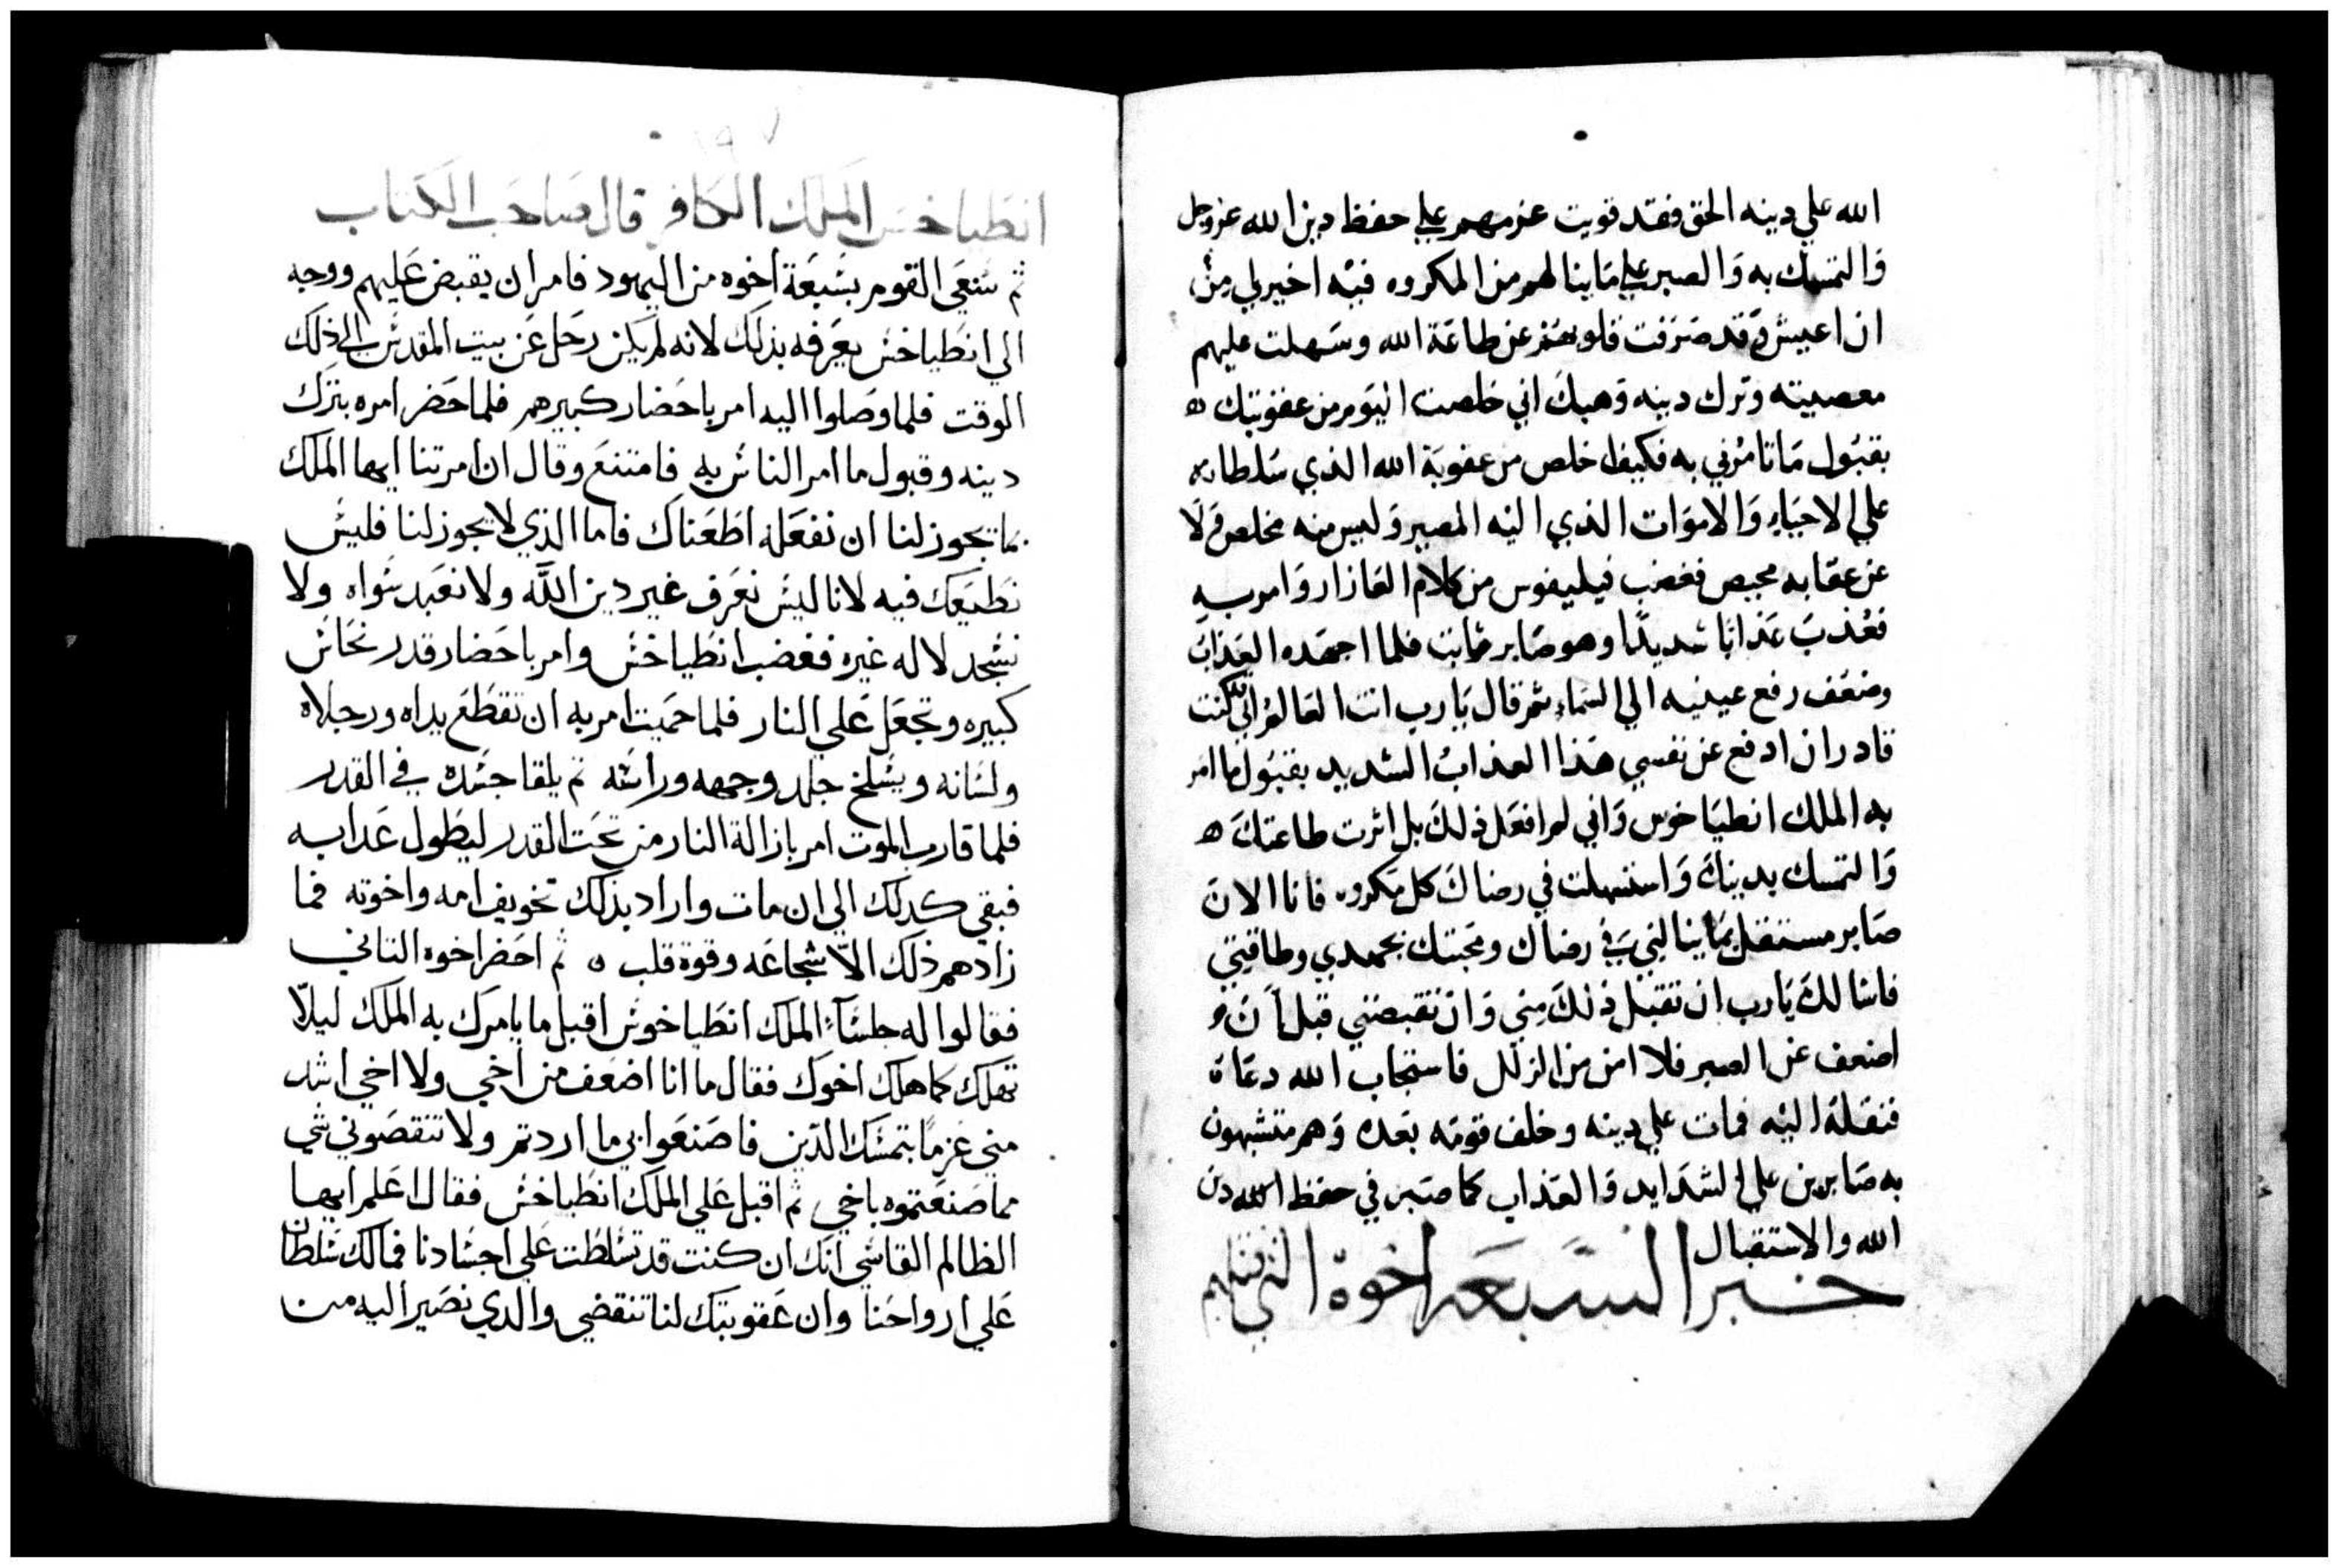 الله علي دينه الحق فقد قويت عزمهم علي حفظ دين الله عز وجل
والتمسك به والصبر علي ما ينالهم من المكروه فيه اخير لي من
ان اعيش وقد صرفت قلوبهم عن طاعة الله وسهلت عليهم
معصيته وترك دينه وهبك اني خلصت اليوم من عقوبتك ه
بقبول ما تامرني به فكيف اخلص من عقوبة الله الذي سلطانه
علي الاحياء والاموات الذي اليه المصير وليس منه مخلص ولا
عن عقابه محيص فغضب فيليفوس من كلام العازار وامر به
فعذب عذابا شديدا وهو صابر ثابت فلما اجهده العذاب
وضعف رفع عينيه الي السماء ثم قال يا رب انت العالم اني كنت
قادر ان ادفع عن نفسي هذا العذاب الشديد بقبول ما امر
به الملك انطياخوس واني لم افعل ذلك بل اثرت طاعتك ه
والتمسك بدينك واستسهلت في رضاك كل مكروه فانا الان
صابر مستقل بما ينالني في رضاك ومحبتك بجهدي وطاقتي
فاسالك يا رب ان تقبل ذلك مني وان تقبضني قبل ان
اضعف عن الصبر فلا امن من الزلل فاستجاب الله دعاه
فنقله اليه فمات علي دينه وخلف قومه بعده وهم متشبهون
به صابرين علي الشدايد والعذاب كما صبر في حفظ الله دن
الله والاستقبال
خبر السبعه اخوة الذي قتلهم
انطياخس الملك الكافر قال صاحب الكتاب
ثم سعي القوم بسبعة اخوه من اليهود فامر ان يقبض عليهم ووجه
الي انطياخس يعرفه بذلك لانه لم يكن رحل عن بيت المقدس الي ذلك
الوقت فلما وصلوا اليه امر باحضار كبيرهم فلما حضر امره بترك
دينه وقبول ما امر الناس به فامتنع وقال ان امرتنا ايها الملك
بما يجوز لنا ان نفعله اطعناك فاما الذي لا يجوز لنا فليس
نطيعك فيه لانا ليس نعرف غير دين الله ولا نعبد سواه ولا
نسجد لاله غيره فغضب انطياخس وامر باحضار قدر نحاس
كبيره وتجعل علي النار فلما حميت امر به ان تقطع يداه ورجلاه
ولسانه ويسلخ جلد وجهه وراسه ثم يلقا جسده في القدر
فلما قارب الموت امر بازالة النار من تحت القدر ليطول عدابه
فبقي كدلك الي ان مات واراد بذلك تخويف امه واخوته فما
زادهم ذلك الا شجاعه وقوة قلب ه ثم احضر اخوه التاني
فقالوا له جلساء الملك انطياخوس اقبل ما يامرك به الملك ليلا
تهلك كما هلك اخوك فقال ما انا اضعف من اخي ولا اخي اشد
مني عزما بتمسك الدين فاصنعوا بي ما اردتم ولا تنقصوني شي
مما صنعتموه باخي ثم اقبل علي الملك انطياخس فقال اعلم ايها
الظالم القاسي انك ان كنت قد تسلطت علي اجسادنا فما لك سلطان
علي ارواحنا وان عقوبتك لنا تنقضي والدي نصير اليه من